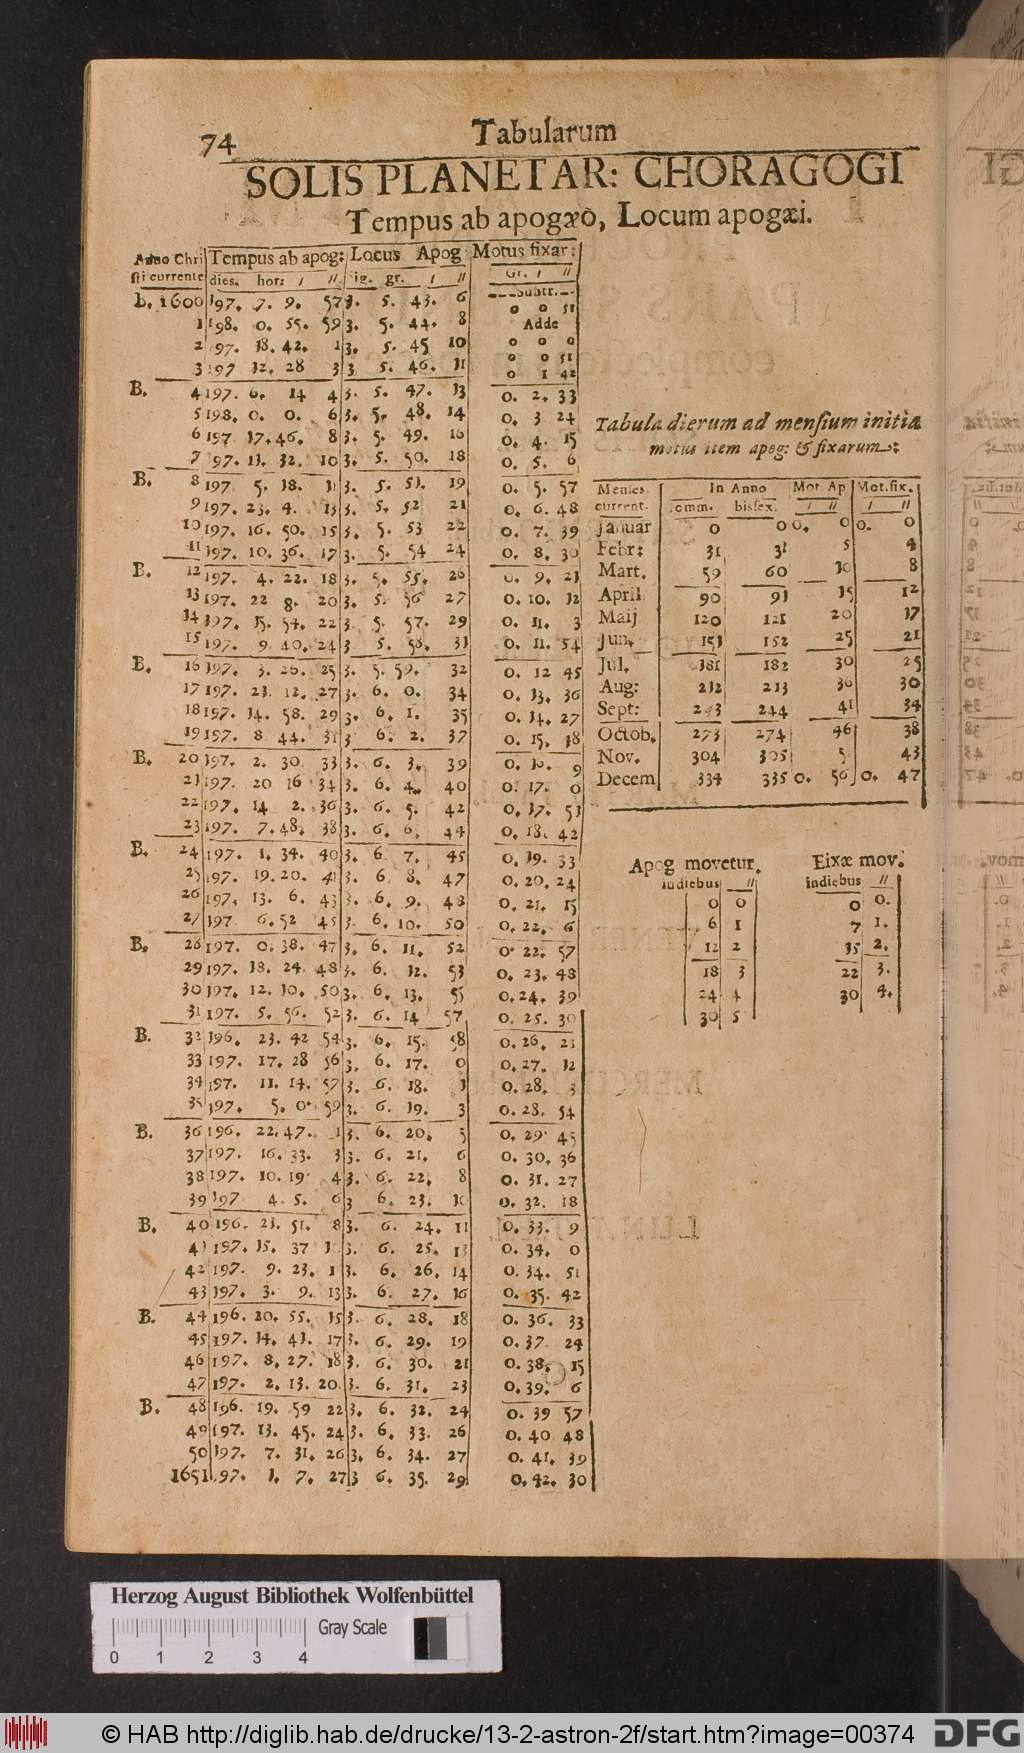 74 Tabularum
SOLIS PLANETAR: CHORAGOGI
Tempus ab apogæō, Locum apogæi.
Anno Chri Tempus ab apog: Locus Apog Motus fixar:
sti currente dies. hor: ı ıı ig. gr. ı ıı Gr. ı ıı
Subtr.
B. 1600 197. 7. 9. 57 3. 5. 43. 6 0 0 51
Adde
1 198. 0. 55. 59 3. 5. 44. 8
2 97. 18. 42. 1 3. 5. 45 10 0 0 0
3 197 12. 28 3 3 5. 46. 11 0 0 51
0 1 42
B. 4 197. 6. 14 4 3. 5. 47. 13 0. 2. 33
5 198. 0. 0. 6 3. 5. 48. 14 0. 3 24
6 197 17. 46. 8 3. 5. 49. 16 0. 4. 15
7 97. 11. 32. 10 3. 5. 50. 18 0. 5. 6
B. 8 197 5. 18. 11 3. 5. 51. 19 0. 5. 57
9 197. 23. 4. 13 3. 5. 52 21 0. 6. 48
10 197. 16. 50. 15 3. 5. 53 22 0. 7. 39
11 197. 10. 36. 17 3. 5. 54 24 0. 8. 30
B. 12 197. 4. 22. 18 3. 5. 55. 26 0. 9. 21
13 197. 22 8. 20 3. 5. 56 27 0. 10. 12
14 197. 15. 54. 22 3. 5. 57. 29 0. 11. 3
15 197. 9. 40. 24 3 5. 58. 31 0. 11. 54
B. 16 197. 3. 26. 25 3. 5. 59. 32 0. 12 45
17 197. 21. 12. 27 3. 6. 0. 34 0. 13. 36
18 197. 14. 58. 29 3. 6. 1. 35 0. 14. 27
19 197. 8. 44. 31 3 6. 2. 37 0. 15. 18
B. 20 197. 2. 30. 33 3. 6. 3. 39 0. 16. 9
21 197. 20 16 34 3. 6. 4. 40 0. 17. 0
22 197. 14 2. 36 3. 6. 5. 42 0. 17. 51
23 197. 7. 48. 38 3. 6. 6. 44 0. 18. 42
B. 24 197. 1. 34. 40 3. 6 7. 45 0. 19. 33
25 197. 19. 20. 41 3. 6 8. 47 0. 20. 24
26 197. 13. 6. 43 3. 6. 9. 48 0. 21. 15
27 197 6. 52 45 3. 6. 10. 50 0. 22. 6
B. 28 197. 0. 38. 47 3. 6. 11. 52 0. 22. 57
29 197. 18. 24. 48 3. 6. 12. 53 0. 23. 48
30 197. 12. 10. 50 3. 6. 13. 55 0. 24. 39
31 197. 5. 56. 52 3. 6. 14 57 0. 25. 30
B. 32 196. 23. 42 54 3. 6. 15. 58 0. 26. 21
33 197. 17. 28 56 3. 6. 17. 0 0. 27. 12
34 197. 11. 14. 57 3. 6. 18. 1 0. 28. 3
35 197. 5. 0. 59 3. 6. 19. 3 0. 28. 54
B. 36 196. 22. 47. 1 3. 6. 20. 5 0. 29. 45
37 197. 16. 33. 3 3. 6. 21. 6 0. 30. 36
38 197. 10. 19. 4 3. 6. 22. 8 0. 31. 27
39 197 4. 5. 6 3 6. 23. 10 0. 32. 18
B. 40 196. 21. 51. 8 3. 6. 24. 11 0. 33. 9
41 197. 15. 37 3. 6. 25. 13 0. 34. 0
42 197. 9. 23. 1 3. 6. 26. 14 0. 34. 51
43 197. 3. 9. 13 3. 6. 27. 16 0. 35. 42
B. 44 196. 20. 55. 15 3. 6. 28. 18 0. 36. 33
45 197. 14. 41. 17 3. 6. 29. 19 0. 37. 24
46 197. 8. 27. 18 3. 6. 30. 21 0. 38. 15
47 197. 2. 13. 20. 3. 6. 31. 23 0. 39. 6
B. 48 196. 19. 59 22 3. 6. 32. 24 0. 39 57
49 197. 13. 45. 24 3. 6. 33. 26 0. 40 48
50 197. 7. 31. 26 3. 6. 34. 27 0. 41. 39
1651 97. 1. 7. 27 3 6. 35. 29 0. 42. 30
Tabula dierum ad mensium initia
motus item apog: & fixarum:
Menses In Anno Mot Ap Mot.fix.
current. omm. bissex. ı ıı ı ıı
Januar 0 0 0. 0 0. 0
Febr: 31 31 5 4
Mart. 59 60 10 8
April 90 91 15 12
Maij 120 121 20 17
Jun. 151 152 25 21
Jul. 181 182 30 25
Aug: 212 213 36 30
Sept: 243 244 41 34
Octob. 273 274 46 38
Nov. 304 305 5 43
Decem 334 335 0. 56 0. 47
Apog movetur. Eixæ mov.
indiebus ıı indiebus ıı
0 0 0 0.
6 1 7 1.
12 2 15 2.
18 3 22 3.
24 4 30 4.
30 5
Herzog August Bibliothek Wolfenbüttel
Gray Scale
0 1 2 3 4
© HAB http://diglib.hab.de/drucke/13-2-astron-2f/start.htm?image=00374 DFG